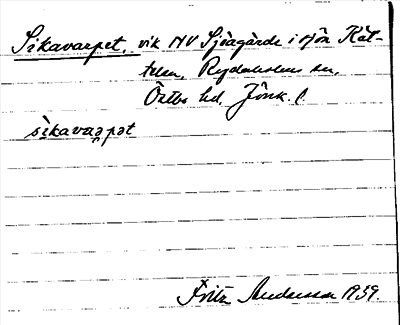 Sikavarpet, vik NV Sjöagärde i sjön Rät-
teln, Rydaholms sn,
Östbo hd, Jönk. l
sikavarpat
Fritz Andersson 1939.